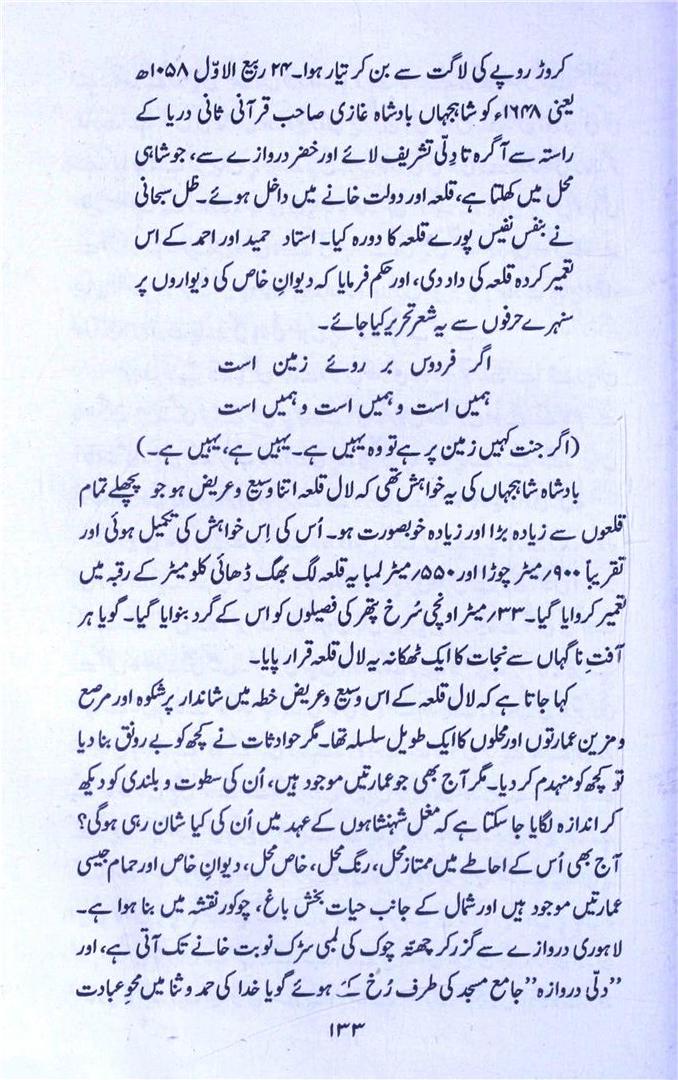 کروڑ روپے کی لاگت سے بن کر تیار ہوا۔ ۲۴ ربیع الاوّل ۱۰۵۸ھ
یعنی ۱۶۴۸ء کو شاہجہاں بادشاہ غازی صاحب قرآنی ثانی دریا کے
راستہ سے آگرہ تا دِلّی تشریف لائے اور خضر دروازے سے، جو شاہی
محل میں کھلتا ہے، قلعہ اور دولت خانے میں داخل ہوئے۔ ظل سبحانی
نے بنفس نفیس پورے قلعہ کا دورہ کیا۔ استاد حمید اور احمد کے اس
تعمیر کردہ قلعہ کی داد دی، اور حکم فرمایا کہ دیوانِ خاص کی دیواروں پر
سنہرے حرفوں سے یہ شعر تحریر کیا جائے۔
اگر فردوس بر روئے زمین است
ہمیں است و ہمیں است و ہمیں است
(اگر جنت کہیں زمین پر ہے تو وہ یہیں ہے۔ یہیں ہے، یہیں ہے۔)
بادشاہ شاہجہاں کی یہ خواہش تھی کہ لال قلعہ اتنا وسیع و عریض ہو جو پچھلے تمام
قلعوں سے زیادہ بڑا اور زیادہ خوبصورت ہو۔ اُس کی اِس خواہش کی تکمیل ہوئی اور
تقریباً ۹۰۰؍میٹر چوڑا اور ۵۵۰؍میٹر لمبا یہ قلعہ لگ بھگ ڈھائی کلومیٹر کے رقبہ میں
تعمیر کروایا گیا۔ ۳۳؍میٹر اونچی سُرخ پتھر کی فصیلوں کو اس کے گرد بنوایا گیا۔ گویا ہر
آفتِ ناگہاں سے نجات کا ایک ٹھکانہ یہ لال قلعہ قرار پایا۔
کہا جاتا ہے کہ لال قلعہ کے اس وسیع و عریض خطہ میں شاندار پرشکوہ اور مرصع
و مزین عمارتوں اور محلوں کا ایک طویل سلسلہ تھا۔ مگر حوادثات نے کچھ کو بے رونق بنا دیا
تو کچھ کو منہدم کر دیا۔ مگر آج بھی جو عمارتیں موجود ہیں، اُن کی سطوت و بلندی کو دیکھ
کر اندازہ لگایا جا سکتا ہے کہ مغل شہنشاہوں کے عہد میں اُن کی کیا شان رہی ہوگی؟
آج بھی اُس کے احاطے میں ممتاز محل، رنگ محل، خاص محل، دیوانِ خاص اور حمام جیسی
عمارتیں موجود ہیں اور شمال کے جانب حیات بخش باغ، چوکور نقشہ میں بنا ہوا ہے۔
لاہوری دروازے سے گزر کر چھتہ چوک کی لمبی سڑک نوبت خانے تک آتی ہے، اور
”دلّی دروازہ“ جامع مسجد کی طرف رُخ کئے ہوئے گویا خدا کی حمد و ثنا میں محوِ عبادت
۱۳۳